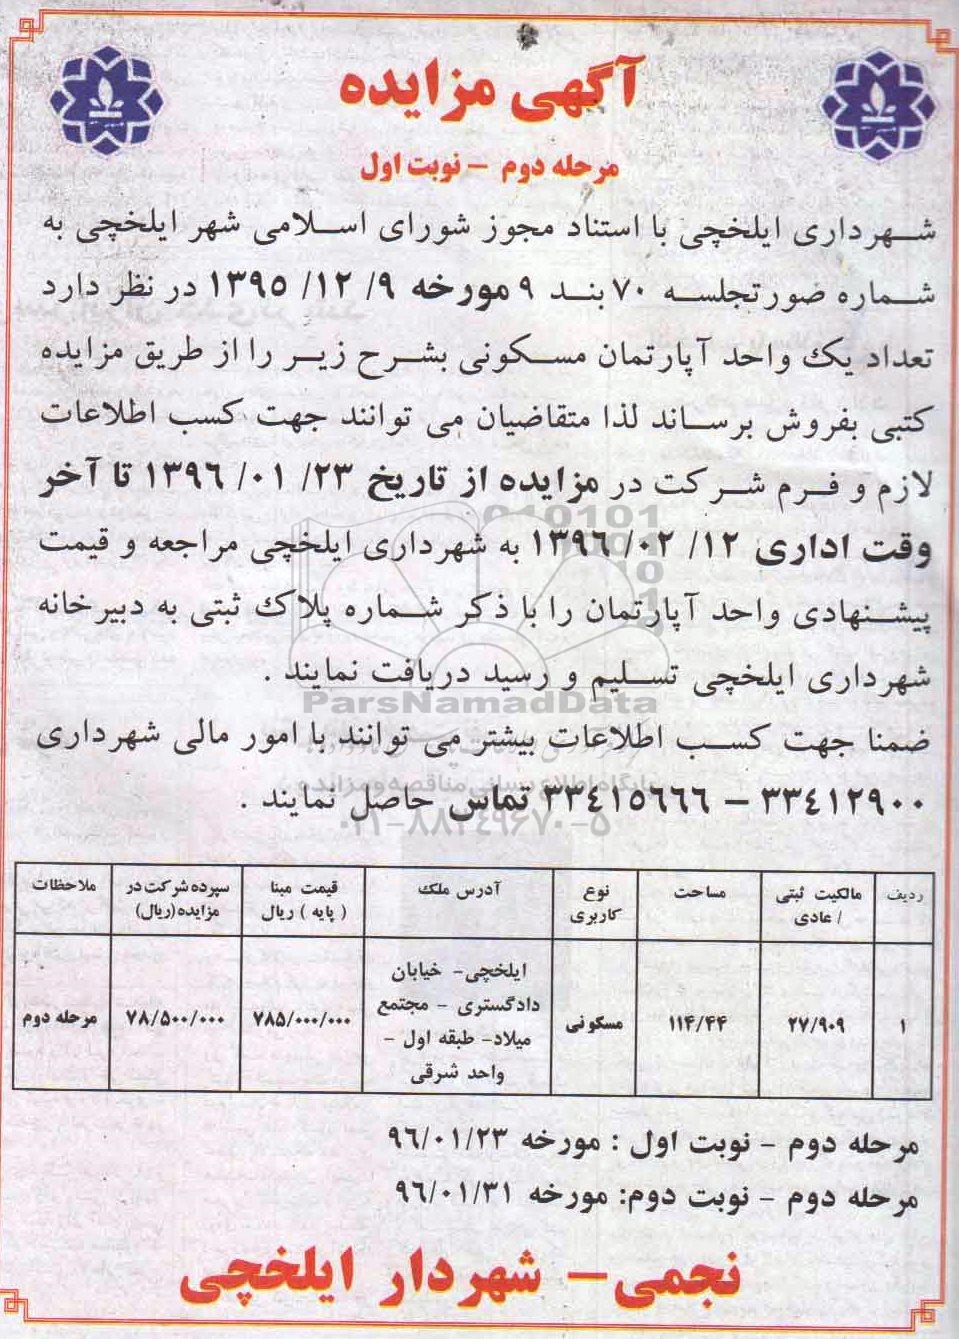 آگهی مزایده
مرحله دوم – نوبت اول
شهرداری ایلخچی با استناد مجوز شورای اسلامی شهر ایلخچی به
شماره صورتجلسه ۷۰ بند ۹ مورخه ۹/ ۱۲/ ۱۳۹۵ در نظر دارد
تعداد یک واحد آپارتمان مسکونی بشرح زیر را از طریق مزایده
کتبی بفروش برساند لذا متقاضیان می توانند جهت کسب اطلاعات
لازم و فرم شرکت در مزایده از تاریخ ۲۳/ ۰۱/ ۱۳۹۶ تا آخر
وقت اداری ۱۲/ ۰۲/ ۱۳۹۶ به شهرداری ایلخچی مراجعه و قیمت
پیشنهادی واحد آپارتمان را با ذکر شماره پلاک ثبتی به دبیرخانه
شهرداری ایلخچی تسلیم و رسید دریافت نمایند .
ParsNamadData
ضمنا جهت کسب اطلاعات بیشتر می توانند با امور مالی شهرداری
پایگاه اطلاع رسانی مناقصه و مزایده
۳۳۴۱۲۹۰۰ – ۳۳۴۱۵۶۶۶ تماس حاصل نمایند .
۰۲۱-۸۸۳۴۹۶۷۰-۵
ردیف | مالکیت ثبتی / عادی | مساحت | نوع کاربری | آدرس ملک | قیمت مبنا ( پایه ) ریال | سپرده شرکت در مزایده(ریال) | ملاحظات
۱ | ۲۷/۹۰۹ | ۱۱۴/۴۴ | مسکونی | ایلخچی- خیابان دادگستری - مجتمع میلاد- طبقه اول - واحد شرقی | ۷۸۵/۰۰۰/۰۰۰ | ۷۸/۵۰۰/۰۰۰ | مرحله دوم
مرحله دوم - نوبت اول : مورخه ۹۶/۰۱/۲۳
مرحله دوم - نوبت دوم: مورخه ۹۶/۰۱/۳۱
نجمی – شهردار ایلخچی